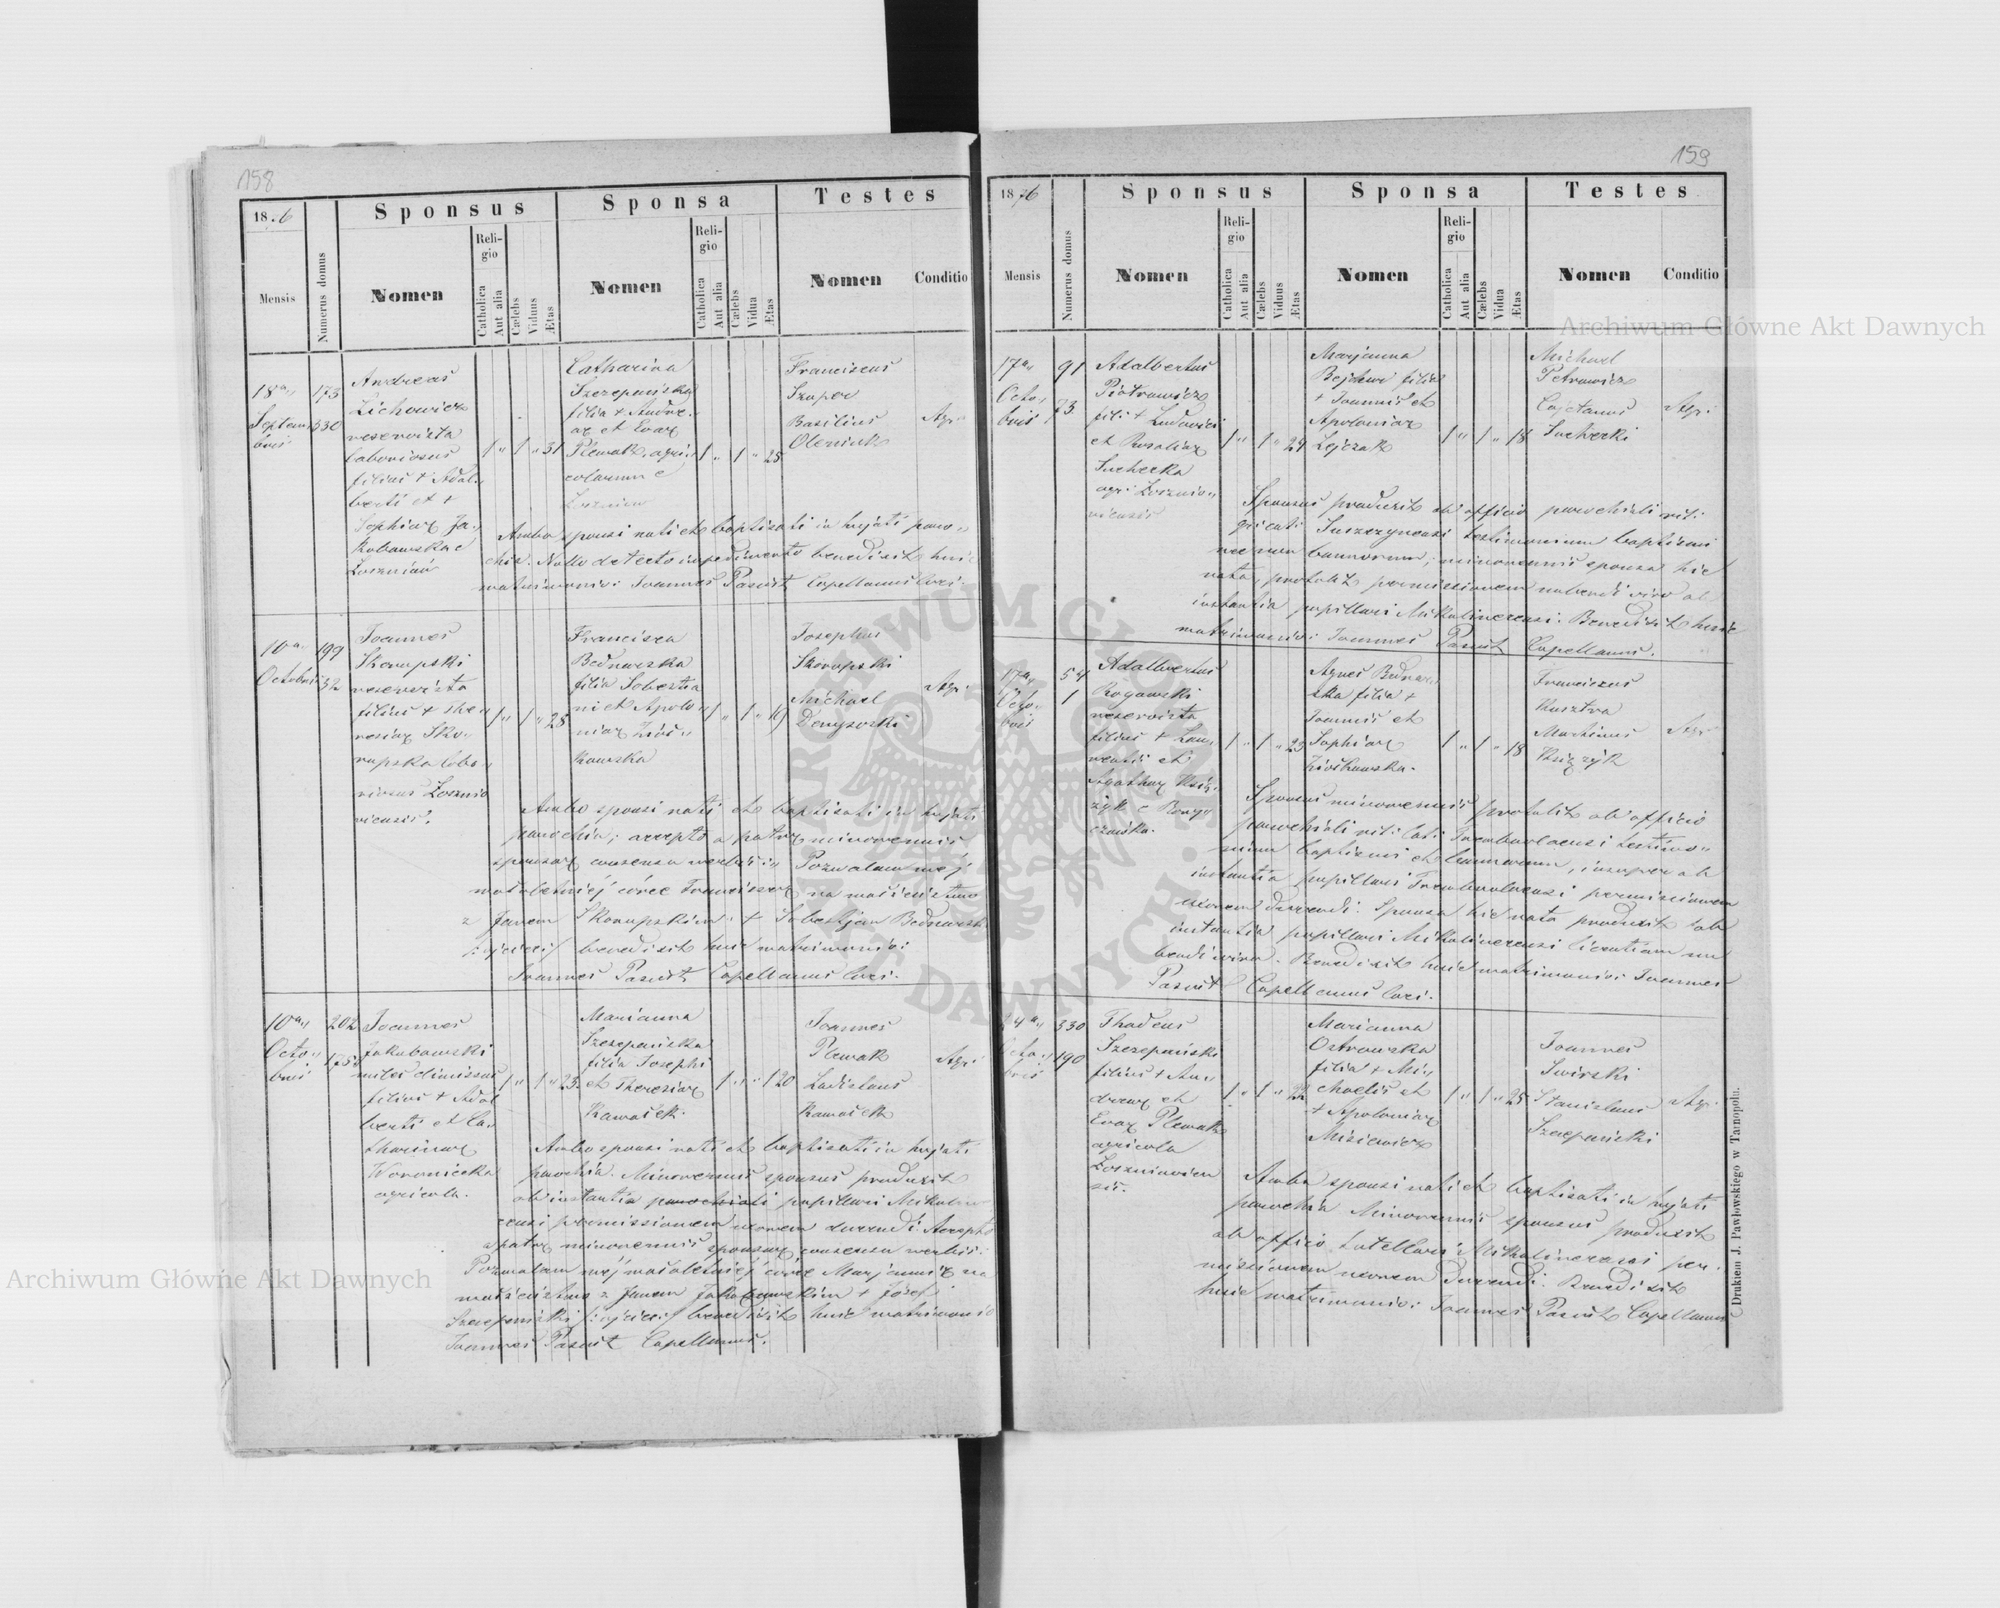 158
18.6
Sponsus
Sponsa
Testes
Mensis
Numerus domus
Nomen
Religio
Catholica
Aut alia
Cælebs
Viduus
Ætas
Nomen
Religio
Catholica
Aut alia
Cælebs
Vidua
Ætas
Nomen
Conditio
18a
Septem
bris
173
330
Andreas
Lichowicz
reservista
laboriosus
filius + Adal
berti et +
Sophiæ Ja
kubowska e
Łoszniów
1 " 1 " 31
Catharina
Szczepańska
filia + Andre
æ et Evæ
Plewak, agri
colarum e
Łoszniow
1 " 1 " 25
Franciscus
Szuper
Basilius
Olesniuk
Agri
Ambo sponsi nati et baptisati in hujati paro"
chia. Nullo detecto impedimento benedixit huic
matrimonio: Joannes Pasut Capellanus loci.
10a
Octobris
199
32
Joannes
Skorupski
reservista
filius + The
resiæ Sko
rupska labo
riosus Łosznio
viensis.
1 " 1 " 28
Francisca
Bednarska
filia Sobestia
ni et Apolo
niæ
kowska
1 " 1 " 19
Josephus
Skorupski
Michael
Denysoski
Agri
Ambo sponsi nati et baptisati in hujati
parochia; accepto a patre minorennis
sponsæ consensu verbis: " Pozwalam mej
małoletniej córce Franciszce na małżeństwo
z Janem Skorupskim" + Sobestjan Bednarski
/:ojciec:/ benedixit huic matrimonio:
Joannes Pasut Capellanus loci.
10a
Octo"
bris
202
175
Joannes
Jakubowski
miles dimissus
filius + Adal
berti et Ca
tharinæ
Woronicka
agricola.
1 " 1 " 23
Marianna
Szczepańska
filia Josephi
et Theresiæ
Kawaśek
1 " " 1 20
Joannes
Plewak
Ladislaus
Kawaśek
Agri
Ambo sponsi nati et baptisati in hujati
parochia. Minorennis sponsus produxit
ab instantia parochiali pupillari Mikulin
censi permissionem uxorem ducendi: Accepto
a patre minorennis sponsæ consensu verbis:
Pozwalam mej małoletniej córce Marjannie na
małżeństwo z Janem Jakubowskim + Józef
Szczepański /:ojciec:/ benedixit huic matrimonio
Joannes Pasut Capellanus.
159
1876
Sponsus
Sponsa
Testes
Mensis
Numerus domus
Nomen
Religio
Catholica
Aut alia
Cælebs
Viduus
Ætas
Nomen
Religio
Catholica
Aut alia
Cælebs
Vidua
Ætas
Nomen
Conditio
17a
Octo
bris
91
73
Adalbertus
Piotrowicz
fili + Ludovici
et Rosaliæ
Suchecka
agri Łosznio
viensis
1 " 1 " 24
Marjanna
filia
+ Joannis et
Apoloniæ
Lejczak
1 " 1 " 18
Michael
Petrowicz
Cajetanus
Suchecki
Agri
Sponsus produxit ab officio parochiali rit:
græcati Suszczynensi testimonium baptismi
nec non bannorum; minorennis sponsa hic
nata, protulit permissionem nubendi viro ab
instantia pupillari Mikulincensi: Benedixit huic
matrimonio: Joannes Pasut Capellanus.
17a
Octo
bris
54
1
Adalbertus
Rogowski
reservista
filius + Lau
rentii et
Agathæ Księ
żyk e
1 " 1 " 23
Agnes Bednar
ska filia +
Joannis et
Sophiæ
Ziółkowska.
1 " 1 " 18
Franciscus
Kusztra
Martinus
Księżyk
Agri
Sponsus minorennis protulit ab officio
parochiali rit: lat: Trembowlacensi testimo"
nium baptismi et bannorum, insuper ab
instantia pupillari Trembowlacensi permissionem
uxorem ducendi: Sponsa hic nata produxit ab
instantia pupillari Mikulincensi licentiam nu
bendi viro. Benedixit huic matrimonio: Joannes
Pasut Capellanus loci.
24a
Octo
bris
330
190
Thadeus
Szczepański
filius + An
dreæ et
Evæ Plewak
agricola
Łoszniovien
sis.
1 " 1 " 22
Marianna
Ostrowska
filia + Mi
chaelis et
+ Apoloniæ
Misiewicz
1 " 1 " 25
Joannes
Swirski
Stanislaus
Szczepański
Agr.
Ambo sponsi nati et baptisati in hujati
parochia Minorennis sponsus produxit
ab officio tutellari Mikulincensi per
missionem uxorem ducendi. Benedixit
huic matrimonio: Joannes Pasut Capellanus
Drukiem J. Pawłowskiego w Tarnopolu.
Archiwum Główne Akt Dawnych
Archiwum Główne Akt Dawnych
ARCHIWUM GŁÓWNE AKT DAWNYCH